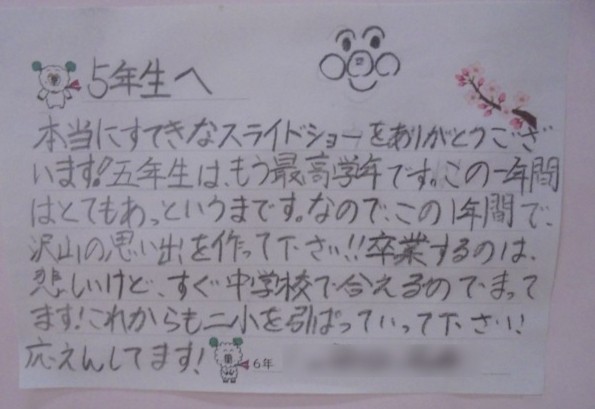 5年生へ
本当にすてきなスライドショーをありがとうござ
います!五年生は、もう最高学年です。この一年間
はとてもあっというまです。なので、この1年間で、
沢山の思い出を作って下さい!!卒業するのは、
悲しいけど、すぐ中学校で合えるのでまって
ます!これからも二小を引ぱっていって下さい!
応えんしてます!
6年